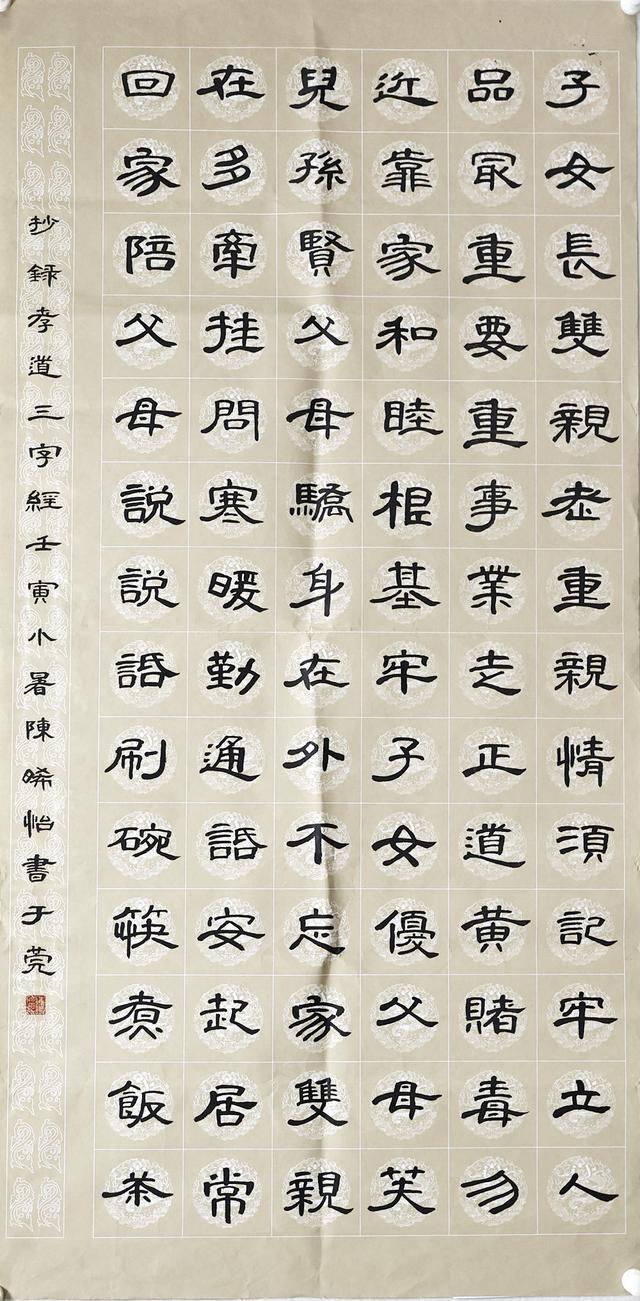 子女長雙親老重親情須記牢立人
品冣重要重事業走正道黄賭毒勿
近靠家和睦根基牢子女優父母笑
兒孫賢父母驕身在外不忘家雙親
在多牽挂問寒暖勤通話安起居常
回家陪父母説説話刷碗筷煮飯茶
抄録孝道三字經壬寅小暑陳晞怡書于莞